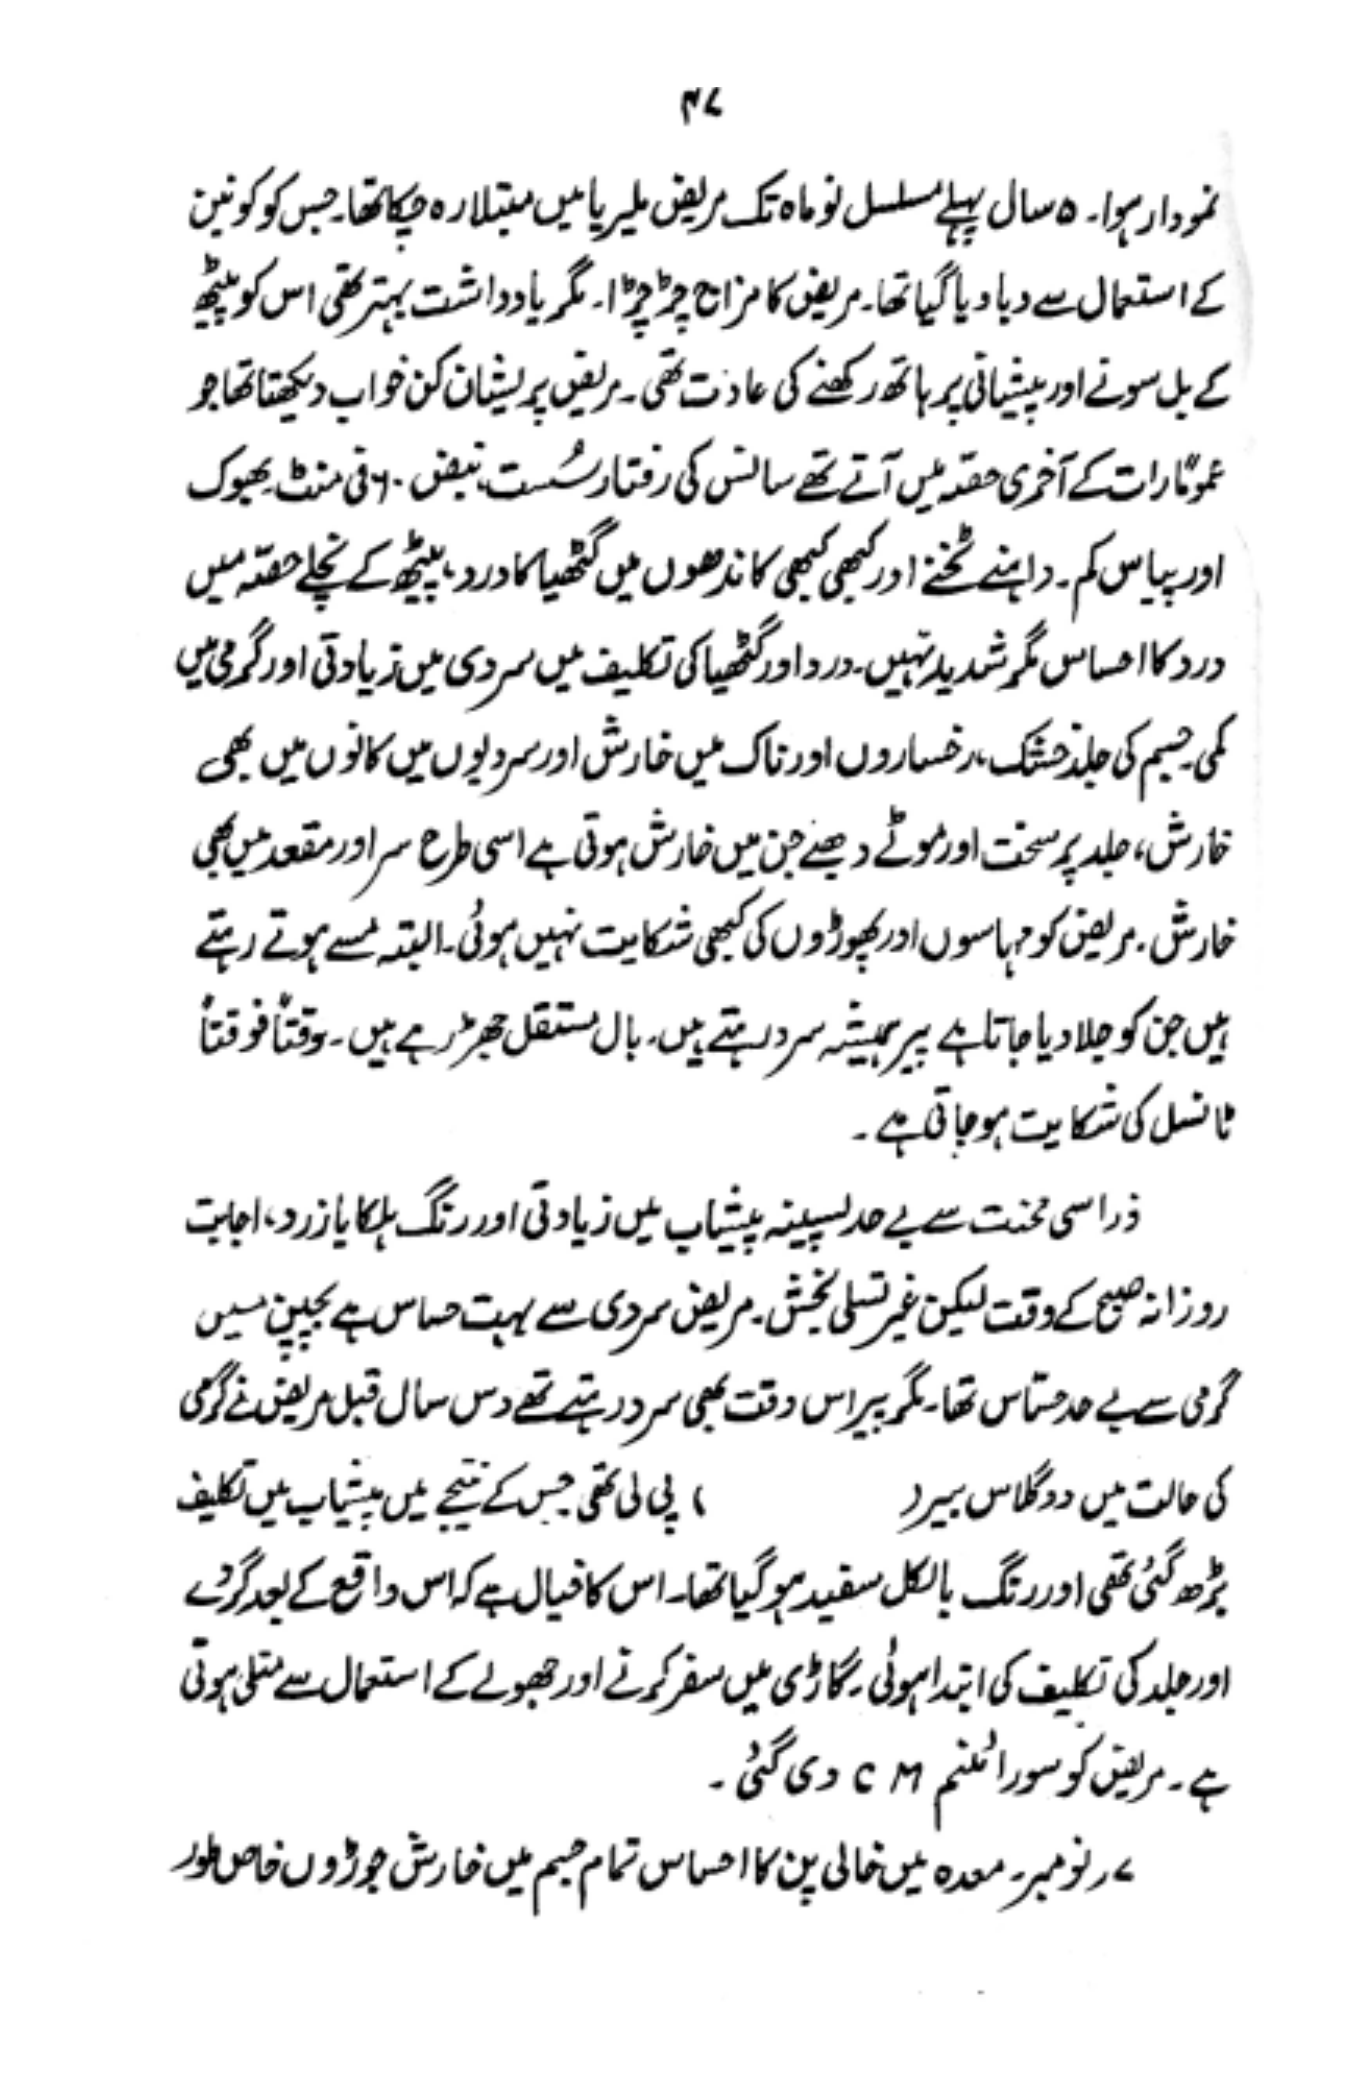 ۴۷
نمودار ہوا۔ ۵ سال پہلے مسلسل نو ماہ تک مریض ملیریا میں مبتلا رہ چکا تھا۔ جس کو کونین
کے استعمال سے دبا دیا گیا تھا۔ مریض کا مزاج چڑچڑا۔ مگر یادداشت بہتر تھی اس کو پیٹھ
کے بل سونے اور پیشانی پر ہاتھ رکھنے کی عادت تھی۔ مریض پریشان کن خواب دیکھتا تھا جو
عموماً رات کے آخری حصّہ میں آتے تھے سانس کی رفتار سُست، نبض ۶۰ فی منٹ۔ بھوک
اور پیاس کم۔ داہنے ٹخنے اور کبھی کبھی کاندھوں میں گٹھیا کا درد، پیٹھ کے نچلے حصّہ میں
درد کا احساس مگر شدید نہیں۔ درد اور گٹھیا کی تکلیف میں سردی میں زیادتی اور گرمی میں
کمی۔ جسم کی جلد خشک، رخساروں اور ناک میں خارش اور سردیوں میں کانوں میں بھی
خارش، جلد پر سخت اور موٹے دھبے جن میں خارش ہوتی ہے اسی طرح سر اور مقعد میں بھی
خارش۔ مریض کو مہاسوں اور پھوڑوں کی کبھی شکایت نہیں ہوئی۔ البتہ مسے ہوتے رہتے
ہیں جن کو جلا دیا جاتا ہے پیر ہمیشہ سرد رہتے ہیں۔ بال مستقل جھڑ رہے ہیں۔ وقتاً فوقتاً
ٹانسل کی شکایت ہو جاتی ہے۔
ذرا سی محنت سے بے حد پسینہ پیشاب میں زیادتی اور رنگ ہلکا یا زرد، اجابت
روزانہ صبح کے وقت لیکن غیر تسلی بخش۔ مریض سردی سے بہت حساس ہے بچپن میں
گرمی سے بے حد حسّاس تھا۔ مگر پیر اس وقت بھی سرد رہتے تھے دس سال قبل مریض نے گرمی
کی حالت میں دو گلاس بیر ( ) پی لی تھی جس کے نتیجے میں پیشاب میں تکلیف
بڑھ گئی تھی اور رنگ بالکل سفید ہو گیا تھا۔ اس کا خیال ہے کہ اس واقع کے بعد گردے
اور جلد کی تکلیف کی ابتدا ہوئی۔ گاڑی میں سفر کرنے اور جھولے کے استعمال سے متلی ہوتی
ہے۔ مریض کو سورائنم C M دی گئی۔
۷ر نومبر۔ معدہ میں خالی پن کا احساس تمام جسم میں خارش جوڑوں خاص طور